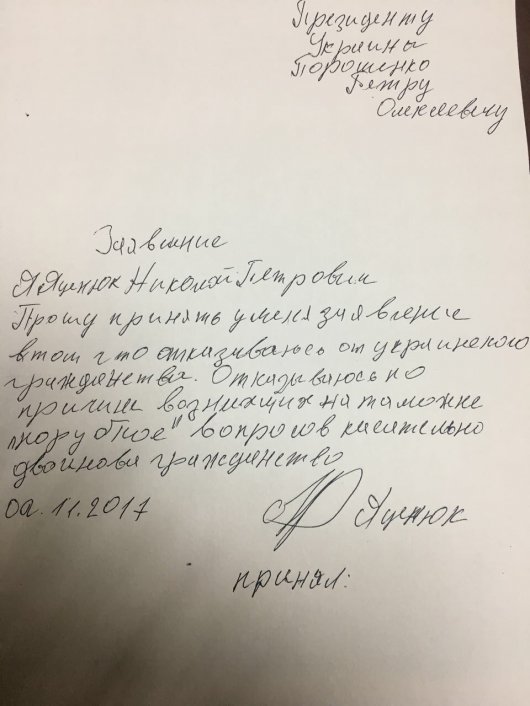 Президенту
Украины
Порошенко
Петру
Олексеевичу
Заявление
Я Яценюк Николай Петрович
Прошу принять у меня заявление
в том что отказиваюсь от украинского
гражданства. Отказываюсь по
причине возникших на таможне
вопросов касательно
двойнова гражданство
11.2017
Яценюк
принял: